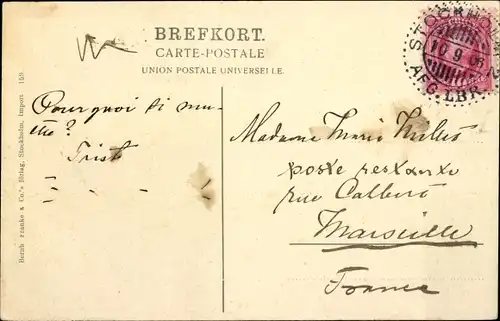 BREFKORT.
CARTE-POSTALE
UNION POSTALE UNIVERSELLE.
STOCKHOLM
10 9
AFG. LBR.
Pourquoi si mu-
ette?
Trist
Madame Marie
poste restante
rue Colbert
Marseille
France
& Co:s förlag, Stockholm, Import 159